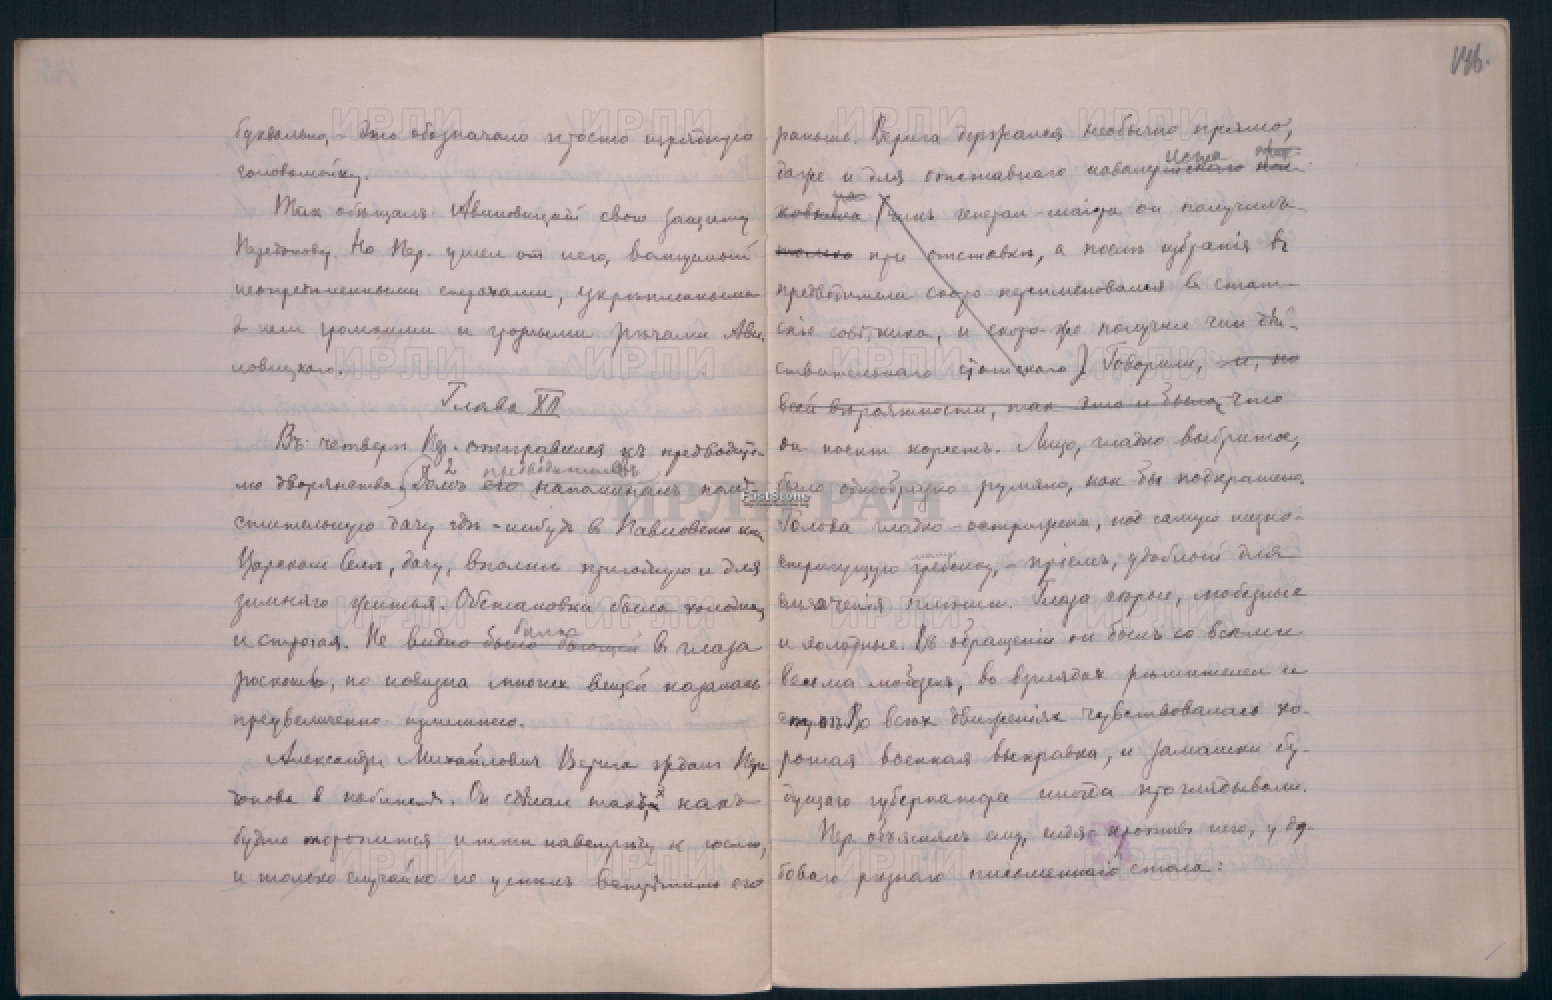 146.
буквально, – это обозначало просто изрядную
головомойку.
Такъ обѣщалъ Авиновицкій свою защиту
Передонову. Но Пер. ушел от него, волнуемый
неопредѣленными страхами, укрѣпленными
в нем громкими и грозными рѣчами Ави-
новицкаго.
Глава XII
Въ четверг Пер. отправился къ предводите-
предводителя
лю дворянства. Домъ его напоминалъ помѣ-
стительную дачу гдѣ-нибудь в Павловскѣ или
Царском Селѣ, дачу, вполнѣ пригодную и для
зимняго житья. Обстановка была холодна,
била
и строгая. Не видно было бьющей в глаза
роскошь, но новизна многих вещей казалась
преувеличенно излишнею.
Александр Михайлович Верига ждал Пере-
донова в кабинетѣ. Он сдѣлал такъ, какъ
будто торопится итти навстрѣчу к гостю,
и только случайно не успѣлъ встрѣтить его
раньше. Верига держался необычно прямо,
даже и для отставного кавалерійскаго пол-
ковника. Чинъ генерал-маіора он получилъ
только при отставкѣ, а послѣ избранія в
предводители скоро переименовался в стат-
скіе совѣтники, и скоро же получил чин дѣй-
ствительнаго статскаго. Говорили, и, по
всей вѣроятности, так это и было, что
он носит корсетъ. Лицо, гладко выбритое,
было однообразно румяно, как бы подкрашено.
Голова гладко острижена, под самую низко-
стригущую гребенку, – пріемъ, удобный для
смягченія плѣши. Глаза сѣрые, любезные
и холодные. Въ обращеніи он былъ со всѣми
весьма любезенъ, во взглядах рѣшителен и
строгъ. Во всѣх движеніях чувствовалась хо-
рошая военная выправка, и замашки бу-
дущаго губернатора иногда проглядывали.
Пер. объяснялъ ему, сидя против него, у ду-
боваго рѣзнаго письменнаго стола: